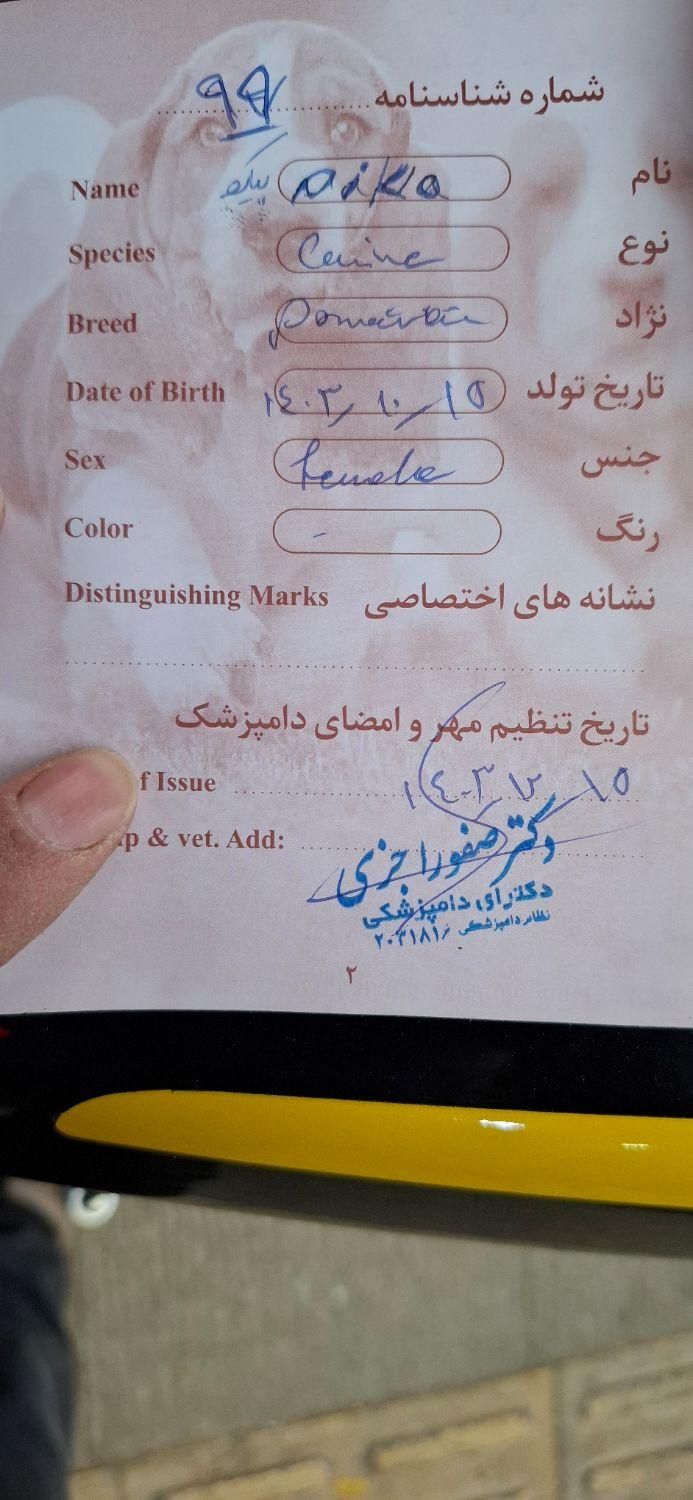 شماره شناسنامه ۹۹
Name پیکو Piko نام
Species Canine نوع
Breed نژاد
Date of Birth ۱۴۰۳/۱۰/۱۵ تاریخ تولد
Sex female جنس
Color - رنگ
Distinguishing Marks نشانه های اختصاصی
تاریخ تنظیم مهر و امضای دامپزشک
f Issue ۱۴۰۳/۱۲/۱۵
p & vet. Add:
دکتر صفورا خزی
دکترای دامپزشکی
نظام دامپزشکی
۲